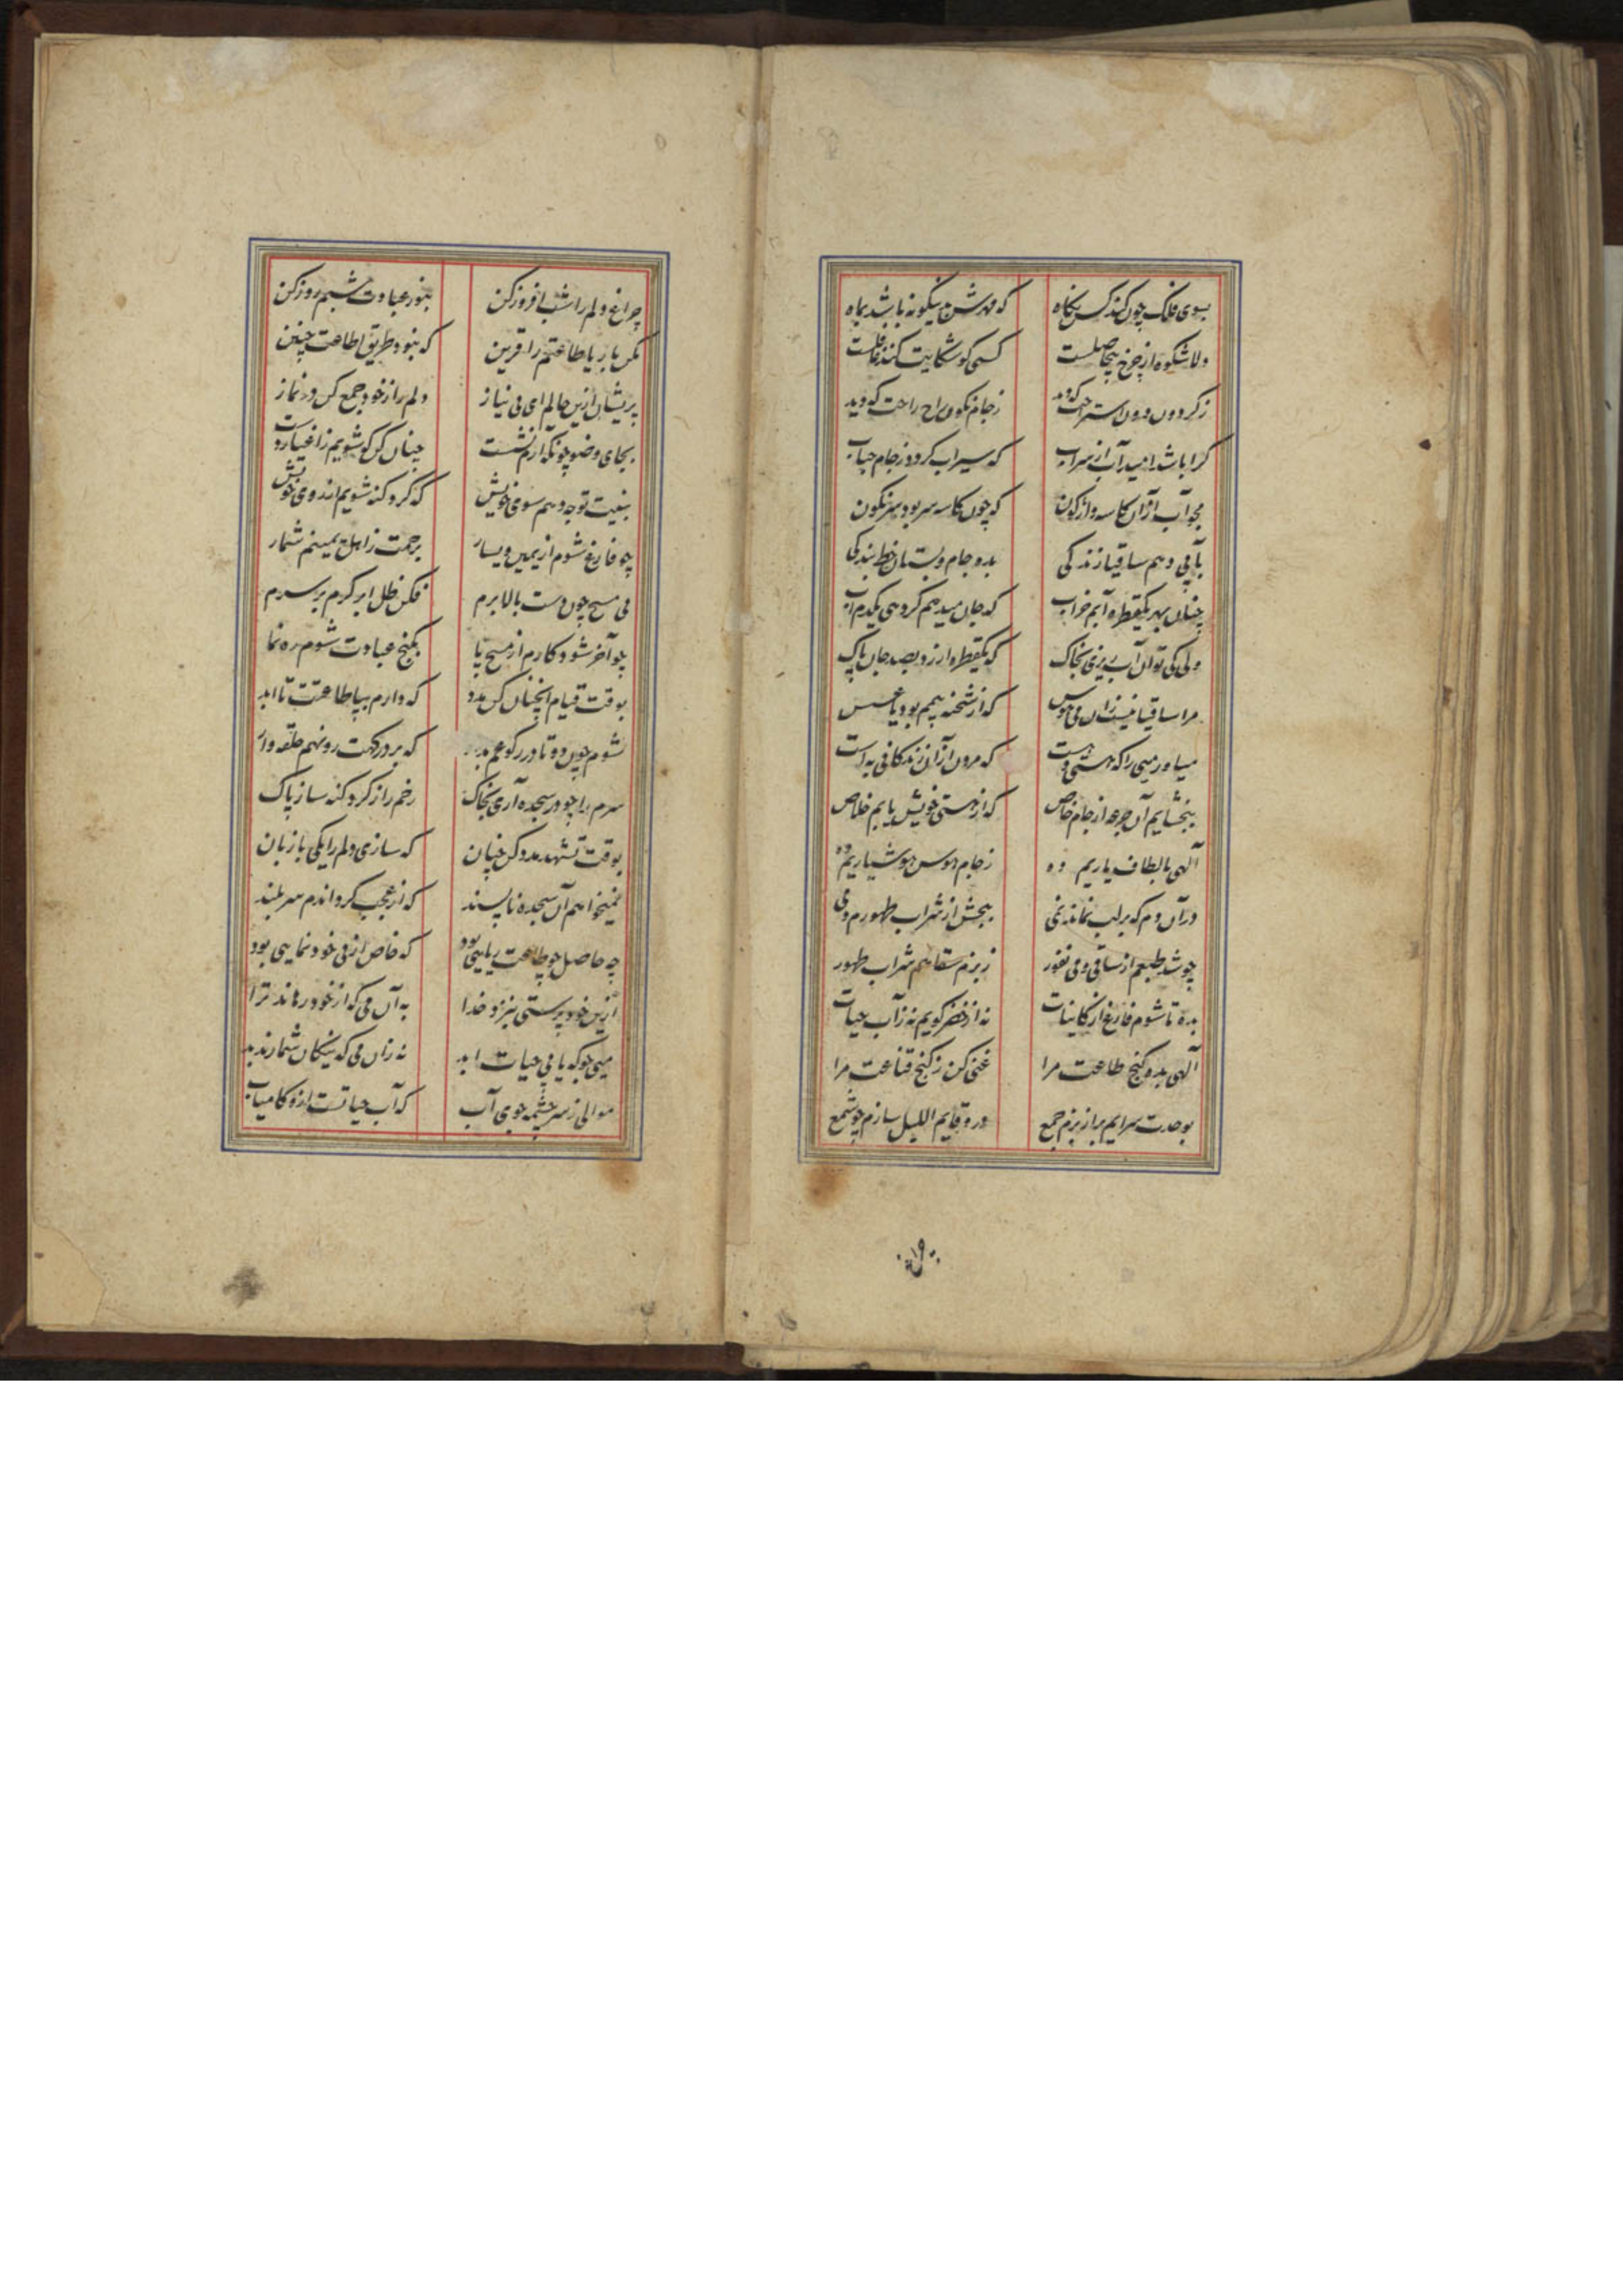 بسوی فلک چون کند کس نکاه که مهرش بدینکونه باشد بماه
دلا شکوه از چرخ بیحاصلست کسی کو شکایت کند غافلست
ز کردون دون استراحت که دید ز جام نکون راح راحت که دید
کرا باشد امید آب از سراب که سیراب کردد ز جام حباب
مجو آب از آن کاسه واژکون که چون کاسه سر بود سرنکون
بیا پی دهم ساقیا زندکی بده جام و بستان خط بندکی
چنان بهر یکقطره آبم خراب که جان میدهم کر دهی یکدم آب
ولی کی توان آب ریزی بخاک که یکقطره ارزد بصد جان پاک
مرا ساقیا نیست زان می هوس که از شحنه بیمم بود یا عسس
میاور میی را که هستی دهست که مردن از آن زندکانی به است
ببخشایم آن جرعه از جام خاص که از هستی خویش یابم خلاص
آلهی بالطاف یاریم ده ز جام هوس هوشیاریم ده
در آن دم که بر لب نماند نمی ببخش از شراب طهورم دمی
چو شد طبعم از ساقی و می نفور ز بزم سقاهم شراب طهور
بده تا شوم فارغ از کاینات نه از خضر کویم نه ز آب حیات
آلهی بده کنج طاعت مرا غنی کن ز کنج قناعت مرا
بوحدت سرایم بر از بزم جمع درو قایم اللیل سازم چو شمع
چراغ دلم را شب افروز کن بنور عبادت شبم روز کن
مکن با ریا طاعتم را قرین که نبود طریق اطاعت چنین
پریشان ازین حالم ای بی نیاز دلم را ز خود جمع کن در نماز
بجای وضو چونکه آرم نشست چنان کن که شویم ز اغیار دست
بنیت توجه دهم سوی خویش که کرد کنه شویم از روی خویش
چو فارغ شوم از یمین و یسار برحمت ز اهل یمینم شمار
پی مسح چون دست بالا برم فکن ظل ابر کرم بر سرم
چو آخر شود کارم از مسح پا بکنج عبادت شوم ره نما
بوقت قیام آنچنان کن مدد که دارم بپا طاعتت تا ابد
شوم چون دو تا در رکوعم بدار که بر درکهت رو نهم حلقه وار
سرم را چو در سجده آری بخاک رخم را ز کرد کنه ساز پاک
بوقت تشهد مدد کن چنان که سازی دلم را یکی با زبان
نمیخواهم آن سجده ناپسند که از عجب کرداندم سر بلند
چه حاصل چو طاعت ریایی بود که خاص از پی خود نمایی بود
ازین خود پرستی نیزد خدا به آن می که از خود رهاند ترا
میی جو که یابی حیات ابد نه زان می که نیکان شمارند بد
موالی ز سر چشمه جوی آب که آب حیاتست ازو کامیاب